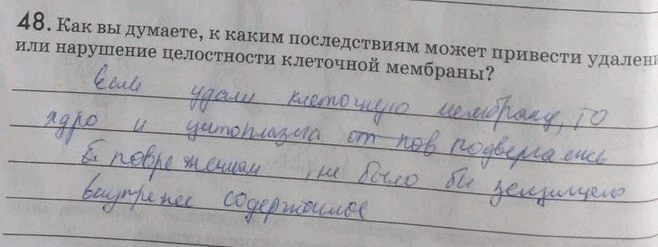 48. Как вы думаете, к каким последствиям может привести удалени
или нарушение целостности клеточной мембраны?
если удали клеточную мембрану, то
ядро и цитоплазма от пов подвергались
б повреждениям , не было бы защищено
внутренее содержимое